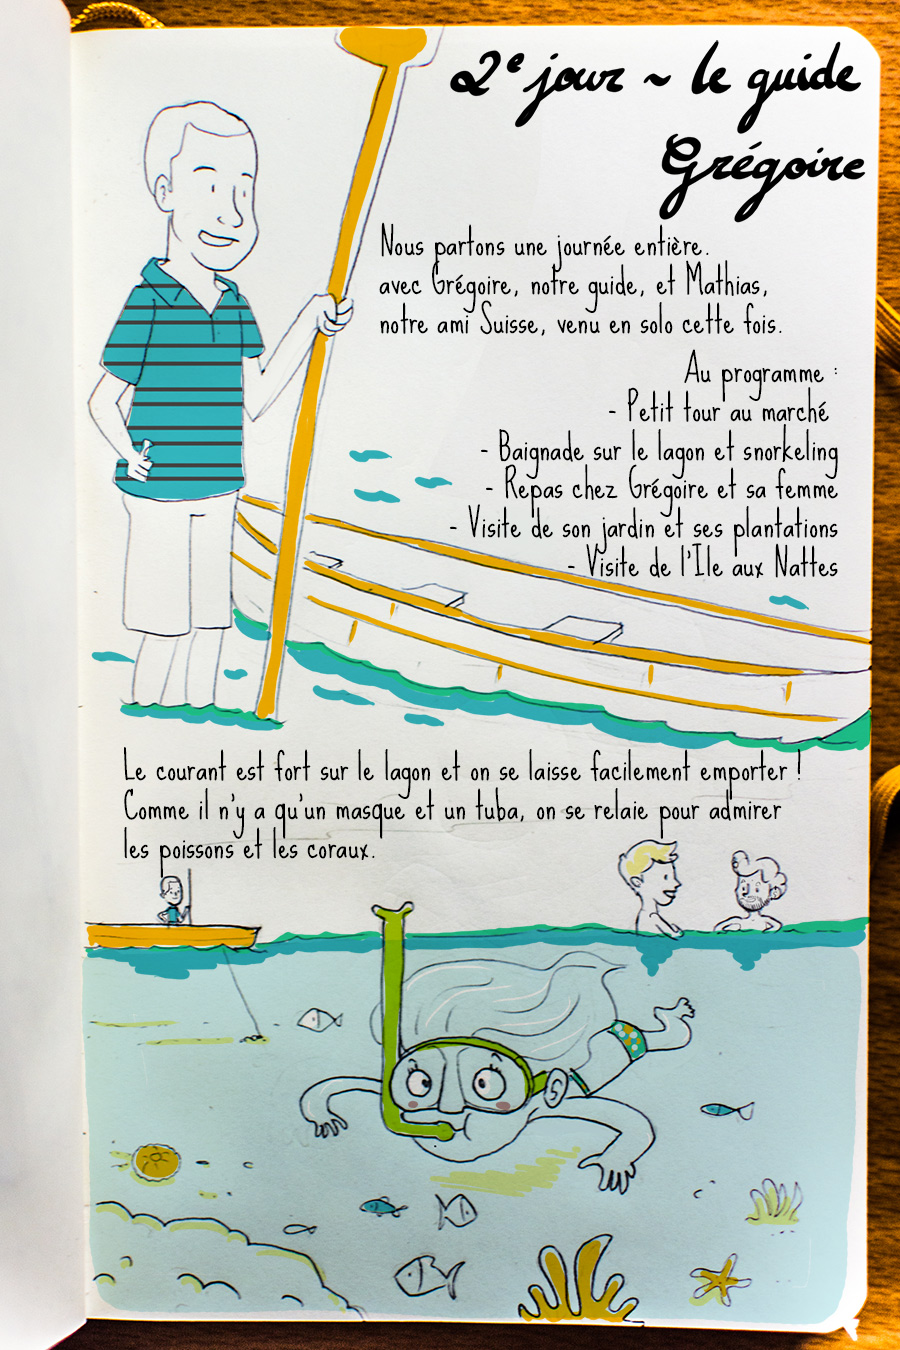 2e jour ~ le guide
Grégoire
Nous partons une journée entière.
avec Grégoire, notre guide, et Mathias,
notre ami Suisse, venu en solo cette fois.
Au programme :
- Petit tour au marché
- Baignade sur le lagon et snorkeling
- Repas chez Grégoire et sa femme
- Visite de son jardin et ses plantations
- Visite de l'Ile aux Nattes
Le courant est fort sur le lagon et on se laisse facilement emporter !
Comme il n'y a qu'un masque et un tuba, on se relaie pour admirer
les poissons et les coraux.